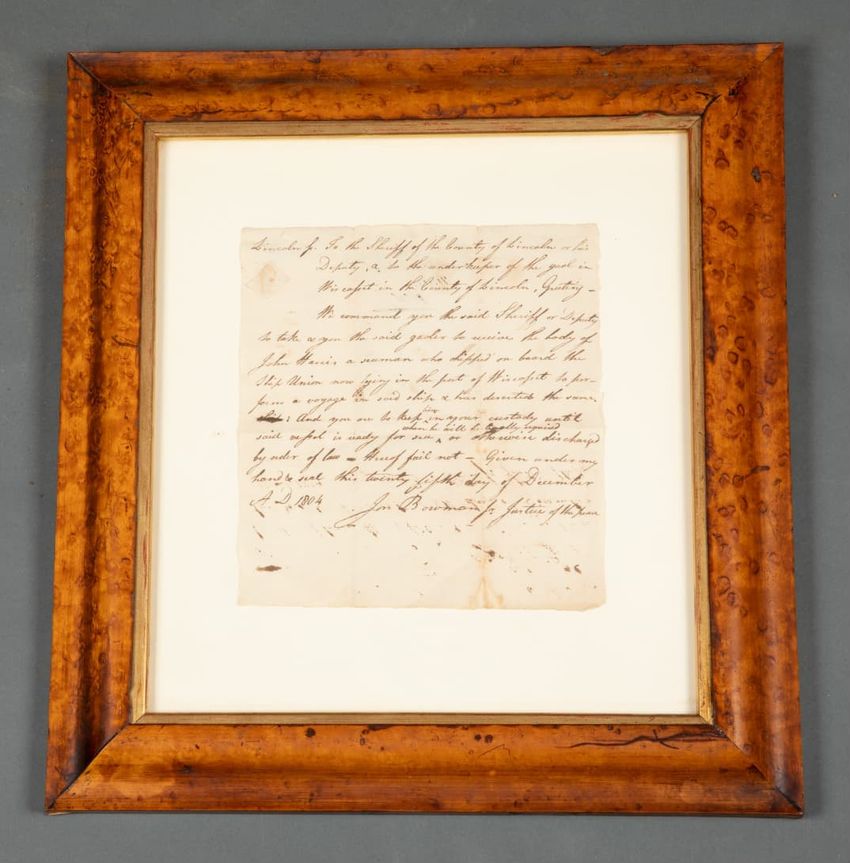 Lincoln ss. To the Sheriff of the County of Lincoln or his
Deputy, & to the under keeper of the goal in
Wiscasset in the County of Lincoln, Greeting –
We command you the said Sheriff or Deputy
to take & you the said goaler to receive the body of
John Harris a seaman who shipped on board the
Ship Union now lying in the port of Wiscasset to per-
form a voyage in said ship & has deserted the same
And you are to keep him in your custody until
said vessel is ready for sea when he will be legally required or otherwise discharged
by order of law – Hereof fail not – Given under my
hand & seal this twenty fifth day of December
A D 1804
Jon Bowman Jr Justice of the peace